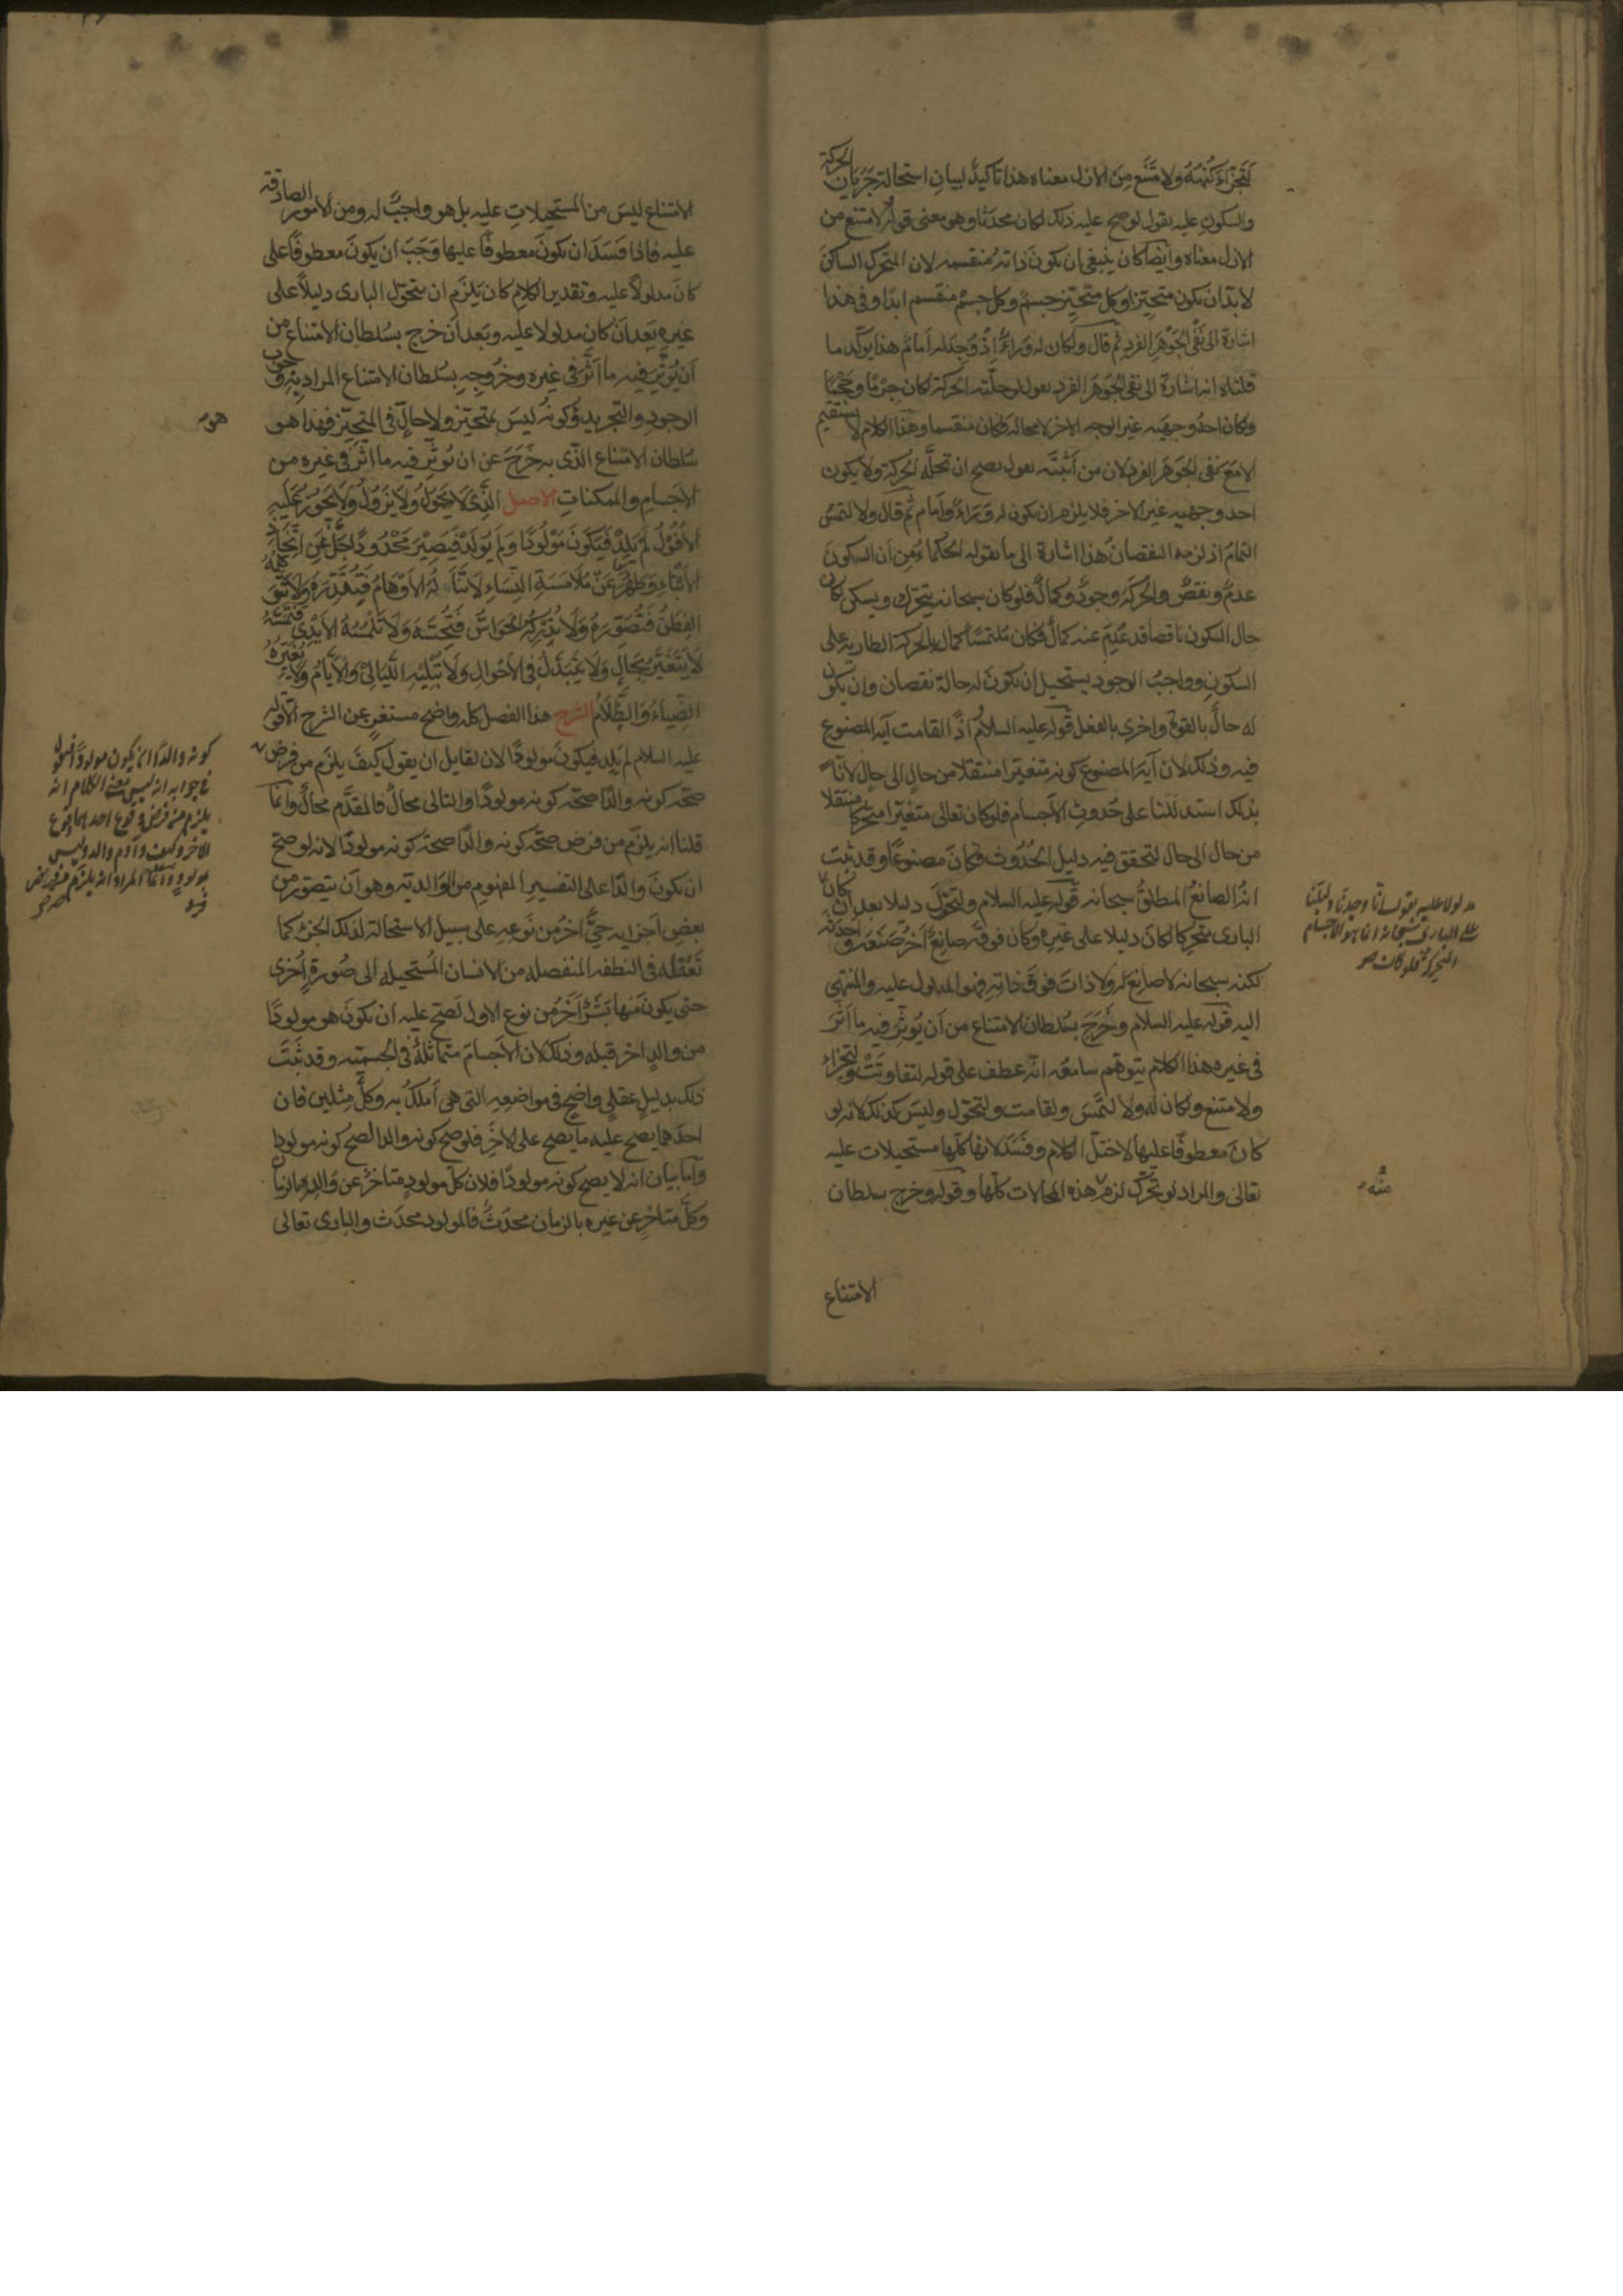 لتجزأ كنهه ولامتنع من الازل معناه هذا تاكيد لبيان استحالة جريان الحركة
والسكون عليه يقول لو صح عليه ذلك لكان محدثا وهو معنى قوله لامتنع من
الازل معناه وايضا كان ينبغي ان يكون ذاته منقسمه لان المتحرك الساكن
لابد ان يكون متحيزا وكل متحيز جسم وكل جسم منقسم ابدا وفي هذا
اشارة الى نفي الجوهر الفرد ثم قال ولكان له وراء اذ وجد له امام هذا يوكد ما
قلناه انه اشارة الى نفي الجوهر الفرد يقول لو حلته الحركة لكان جرما وحجما
ولكان احد وجهيه غير الوجه الاخر لا محالة فكان منقسما وهذا الكلام لا يستقيم
الا مع نفي الجوهر الفرد لان من اثبته يقول يصح ان تحله الحركة ولا يكون
احد وجهيه غير الاخر فلا يلزم ان يكون له وراء وامام ثم قال ولا لتمس
التمام اذ لزمه النقصان هذا اشارة الى ما يقوله الحكماء من ان السكون
عدم ونقص والحركة وجود وكمال فلو كان سبحانه يتحرك ويسكن لكان
حال السكون ناقصا قد عدم عنه كماله فكان ملتمسا كماله بالحركة الطاريه على
السكون وواجب الوجود يستحيل ان يكون له حالة نقصان وان يكون
له حال بالقوة واخرى بالفعل قوله عليه السلام اذًا لقامت آية المصنوع
فيه وذلك لان آية المصنوع كونه متغيرا منتقلا من حال الى حال لانا
بذلك استدللنا على حدوث الاجسام فلو كان تعالى متغيرا متحركا منتقلا
من حال الى حال لتحقق فيه دليل الحدوث فكان مصنوعا وقد ثبت
انه الصانع المطلق سبحانه قوله عليه السلام ولتحول دليلا بعد ان كان
مدلولا عليه يقول انا وجدنا دليلنا
على الباري سبحانه انما هو الاجسام
المتحركة فلو كان صح
الباري متحركا لكان دليلا على غيره وكان فوقه صانع آخر صنعه واحدثه
لكنه سبحانه لا صانع له ولا ذات فوق ذاته فهو المدلول عليه والمنتهي
اليه قوله عليه السلام وخرج بسلطان الامتناع من ان يوثر فيه ما اثر
في غيره هذا الكلام يتوهم سامعه انه عطف على قوله لتفاوتت ولتجزاء
ولامتنع ولكان له ولا لتمس ولقامت ولتحول وليس كذلك لانه لو
كان معطوفا عليها لاختل الكلام وفسد لانها كلها مستحيلات عليه
تعالى والمراد لو تحرك لزم هذه المحالات كلها وقوله وخرج بسلطان
منه
الامتناع
الامتناع ليس من المستحيلات عليه بل هو واجب له ومن الامور الصادقة
عليه فاذا فسد ان يكون معطوفا عليها وجب ان يكون معطوفا على
كان مدلولا عليه وتقدير الكلام كان يلزم ان يتحول الباري دليلا على
غيره بعد ان كان مدلولا عليه وبعد ان خرج بسلطان الامتناع من
ان يوثر فيه ما اثر في غيره وخروجه بسلطان الامتناع المراد به وجوب
الوجود والتجريد وكونه ليس بمتحيز ولا حال في المتحيز فهذا هو
هو
سلطان الامتناع الذي به خرج عن ان يوثر فيه ما اثر في غيره من
الاجسام والممكنات الاصل الذي لا يحول ولا يزول ولا يجوز عليه
الافول لم يلد فيكون مولودا ولم يولد فيصير محدودا جل عن اتخاذ
الابناء وطهر عن ملامسة النساء لا تناله الاوهام فتقدره ولا تتوهمه
الفطن فتصوره ولا تدركه الحواس فتحسه ولا تلمسه الايدي فتمسه
لا يتغير بحال ولا يتبدل في الاحوال ولا تبليه الليالي والايام ولا يغيره
الضياء والظلام الشرح هذا الفصل كله واضح مستغن عن الشرح الا قوله
عليه السلام لم يلد فيكون مولودا لان لقايل ان يقول كيف يلزم من فرض
كونه والدا ان يكون مولودا فنقول
في جوابه انه ليس معنى الكلام انه
يلزم من فرض وقوع احدهما وقوع
الاخر وكيف وآدم والد وليس
بمولود وانما المراد انه يلزم من فرض
صحة كونه والدا صحة كونه مولودا والتالي محال فالمقدم محال وانما
قلنا انه يلزم من فرض صحة كونه والدا صحة كونه مولودا لانه لو صح
ان يكون والدا على التفسير المفهوم من الوالدية وهو ان يتصور من
بعض اجزايه حي آخر من نوعه على سبيل الاستحالة لذلك الجزء كما
نعقله في النطفه المنفصله من الانسان المستحيله الى صورة اخرى
حتى يكون منها بشر آخر من نوع الاول لصح عليه ان يكون هو مولودا
من والد اخر قبله وذلك لان الاجسام متماثلة في الجسميه وقد ثبت
ذلك بدليل عقلي واضح في مواضعه التي هي املك به وكل مثلين فان
احدهما يصح عليه ما يصح على الاخر فلو صح كونه والدا لصح كونه مولودا
واما بيان انه لا يصح كونه مولودا فلان كل مولود متاخر عن والده بالزمان
وكل متاخر عن غيره بالزمان محدث فالمولود محدث والباري تعالى